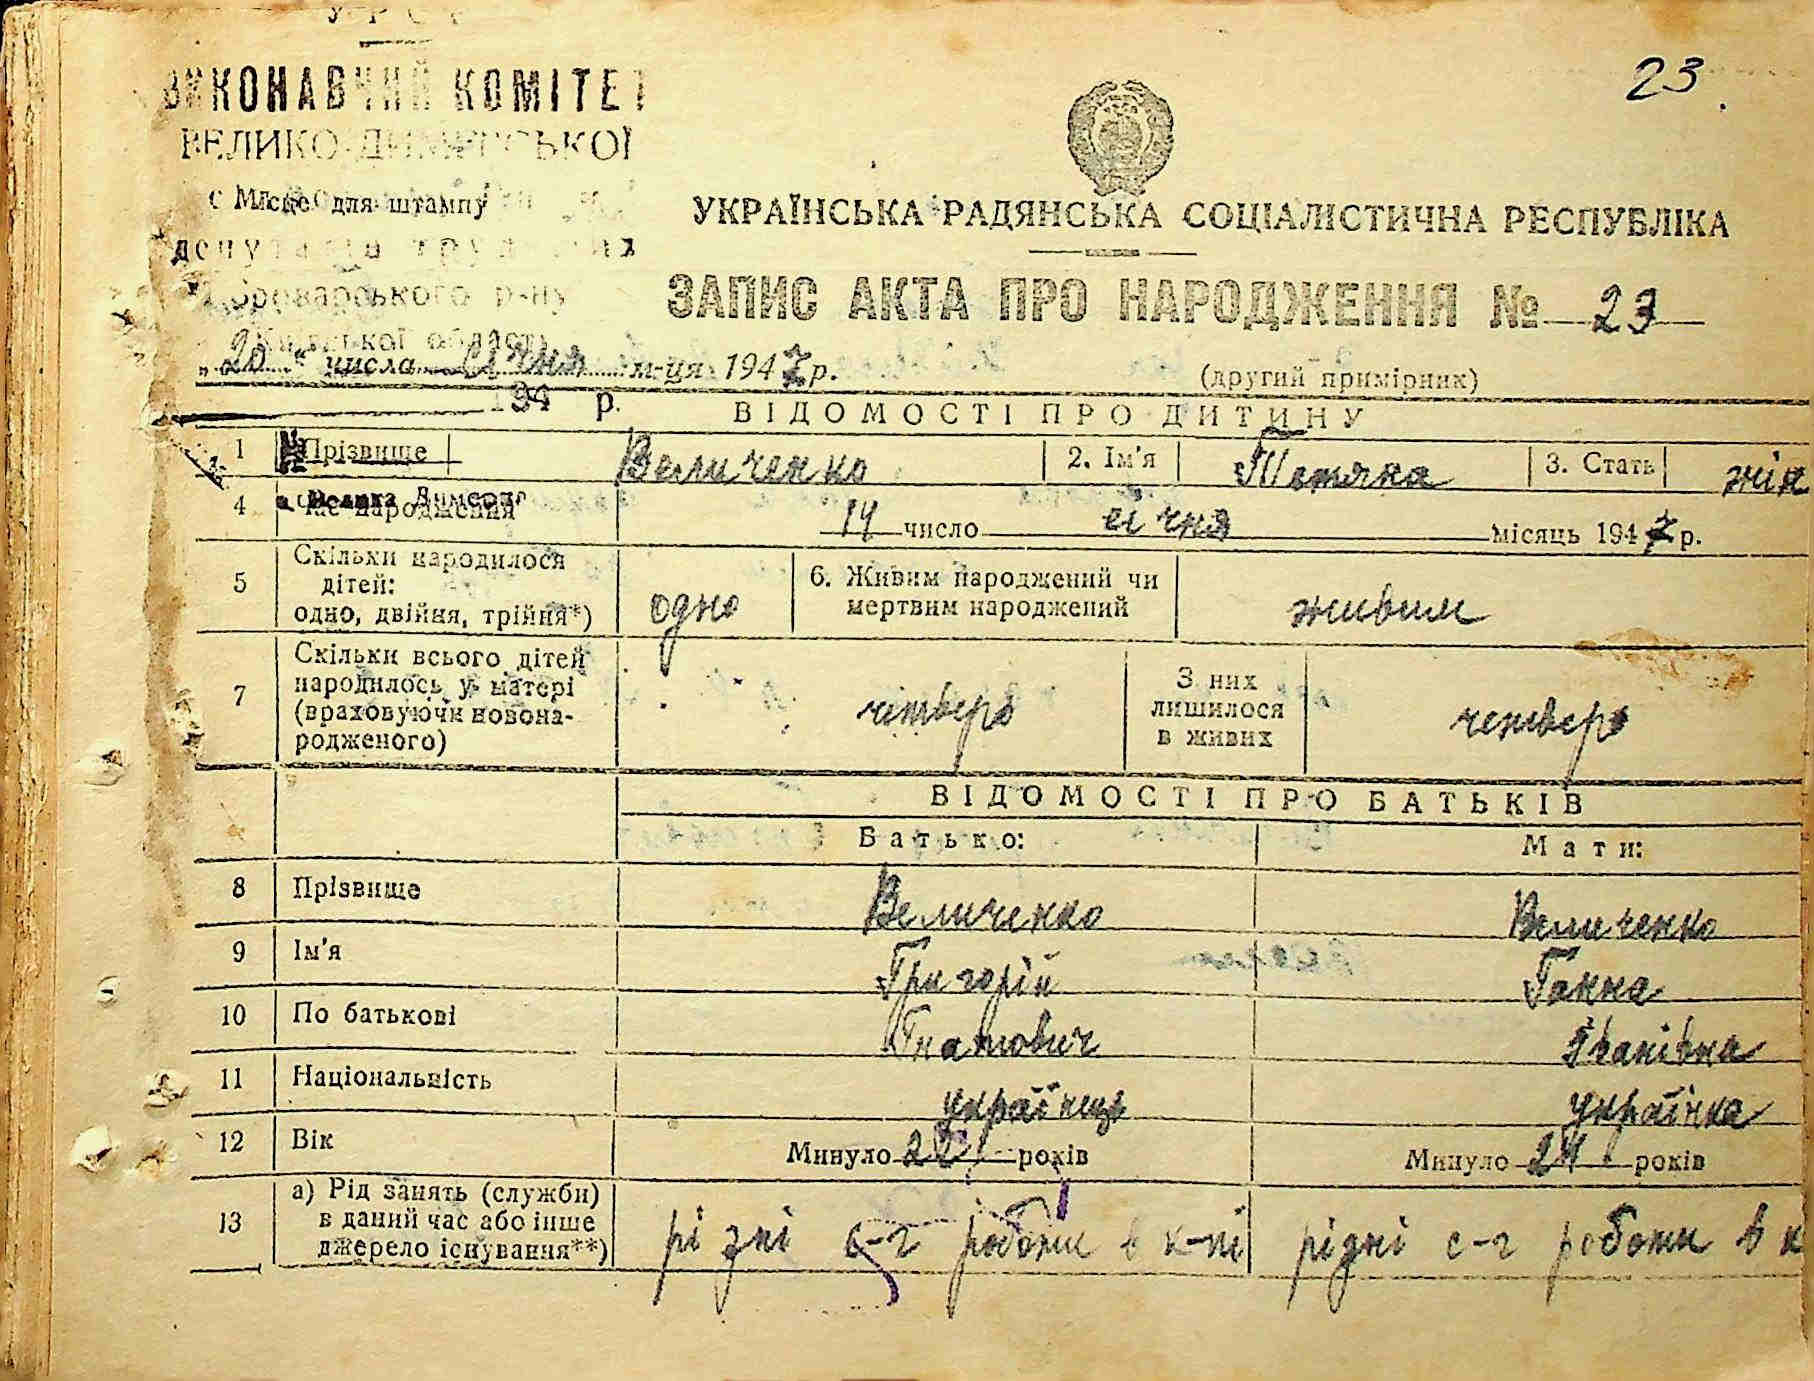 УРСР
23
ВИКОНАВЧИЙ КОМІТЕТ
ВЕЛИКО-ДИМЕРСЬКОЇ
Місце для штампу
депутатів трудящих
Броварського р-ну
Київської області
УКРАЇНСЬКА РАДЯНСЬКА СОЦІАЛІСТИЧНА РЕСПУБЛІКА
ЗАПИС АКТА ПРО НАРОДЖЕННЯ № 23
„20“ числа січня м-ця 1947 р.
(другий примірник)
194 р.
ВІДОМОСТІ ПРО ДИТИНУ
1 Прізвище Величенко 2. Ім'я Тетяна 3. Стать жін
с. Велика Димерка
4 Час народження 14 число січня місяць 1947 р.
5 Скільки народилося дітей: одно, двійня, трійня*) одно 6. Живим народжений чи мертвим народжений живим
7 Скільки всього дітей народилось у матері (враховуючи новонародженого) четверо З них лишилося в живих четверо
ВІДОМОСТІ ПРО БАТЬКІВ
Батько: Мати:
8 Прізвище Величенко Величенко
9 Ім'я Григорій Ганна
10 По батькові Гнатович Іванівна
11 Національність українець українка
12 Вік Минуло років Минуло 24 років
13 а) Рід занять (служби) в даний час або інше джерело існування**) різні с-г роботи в к-пі різні с-г роботи в к